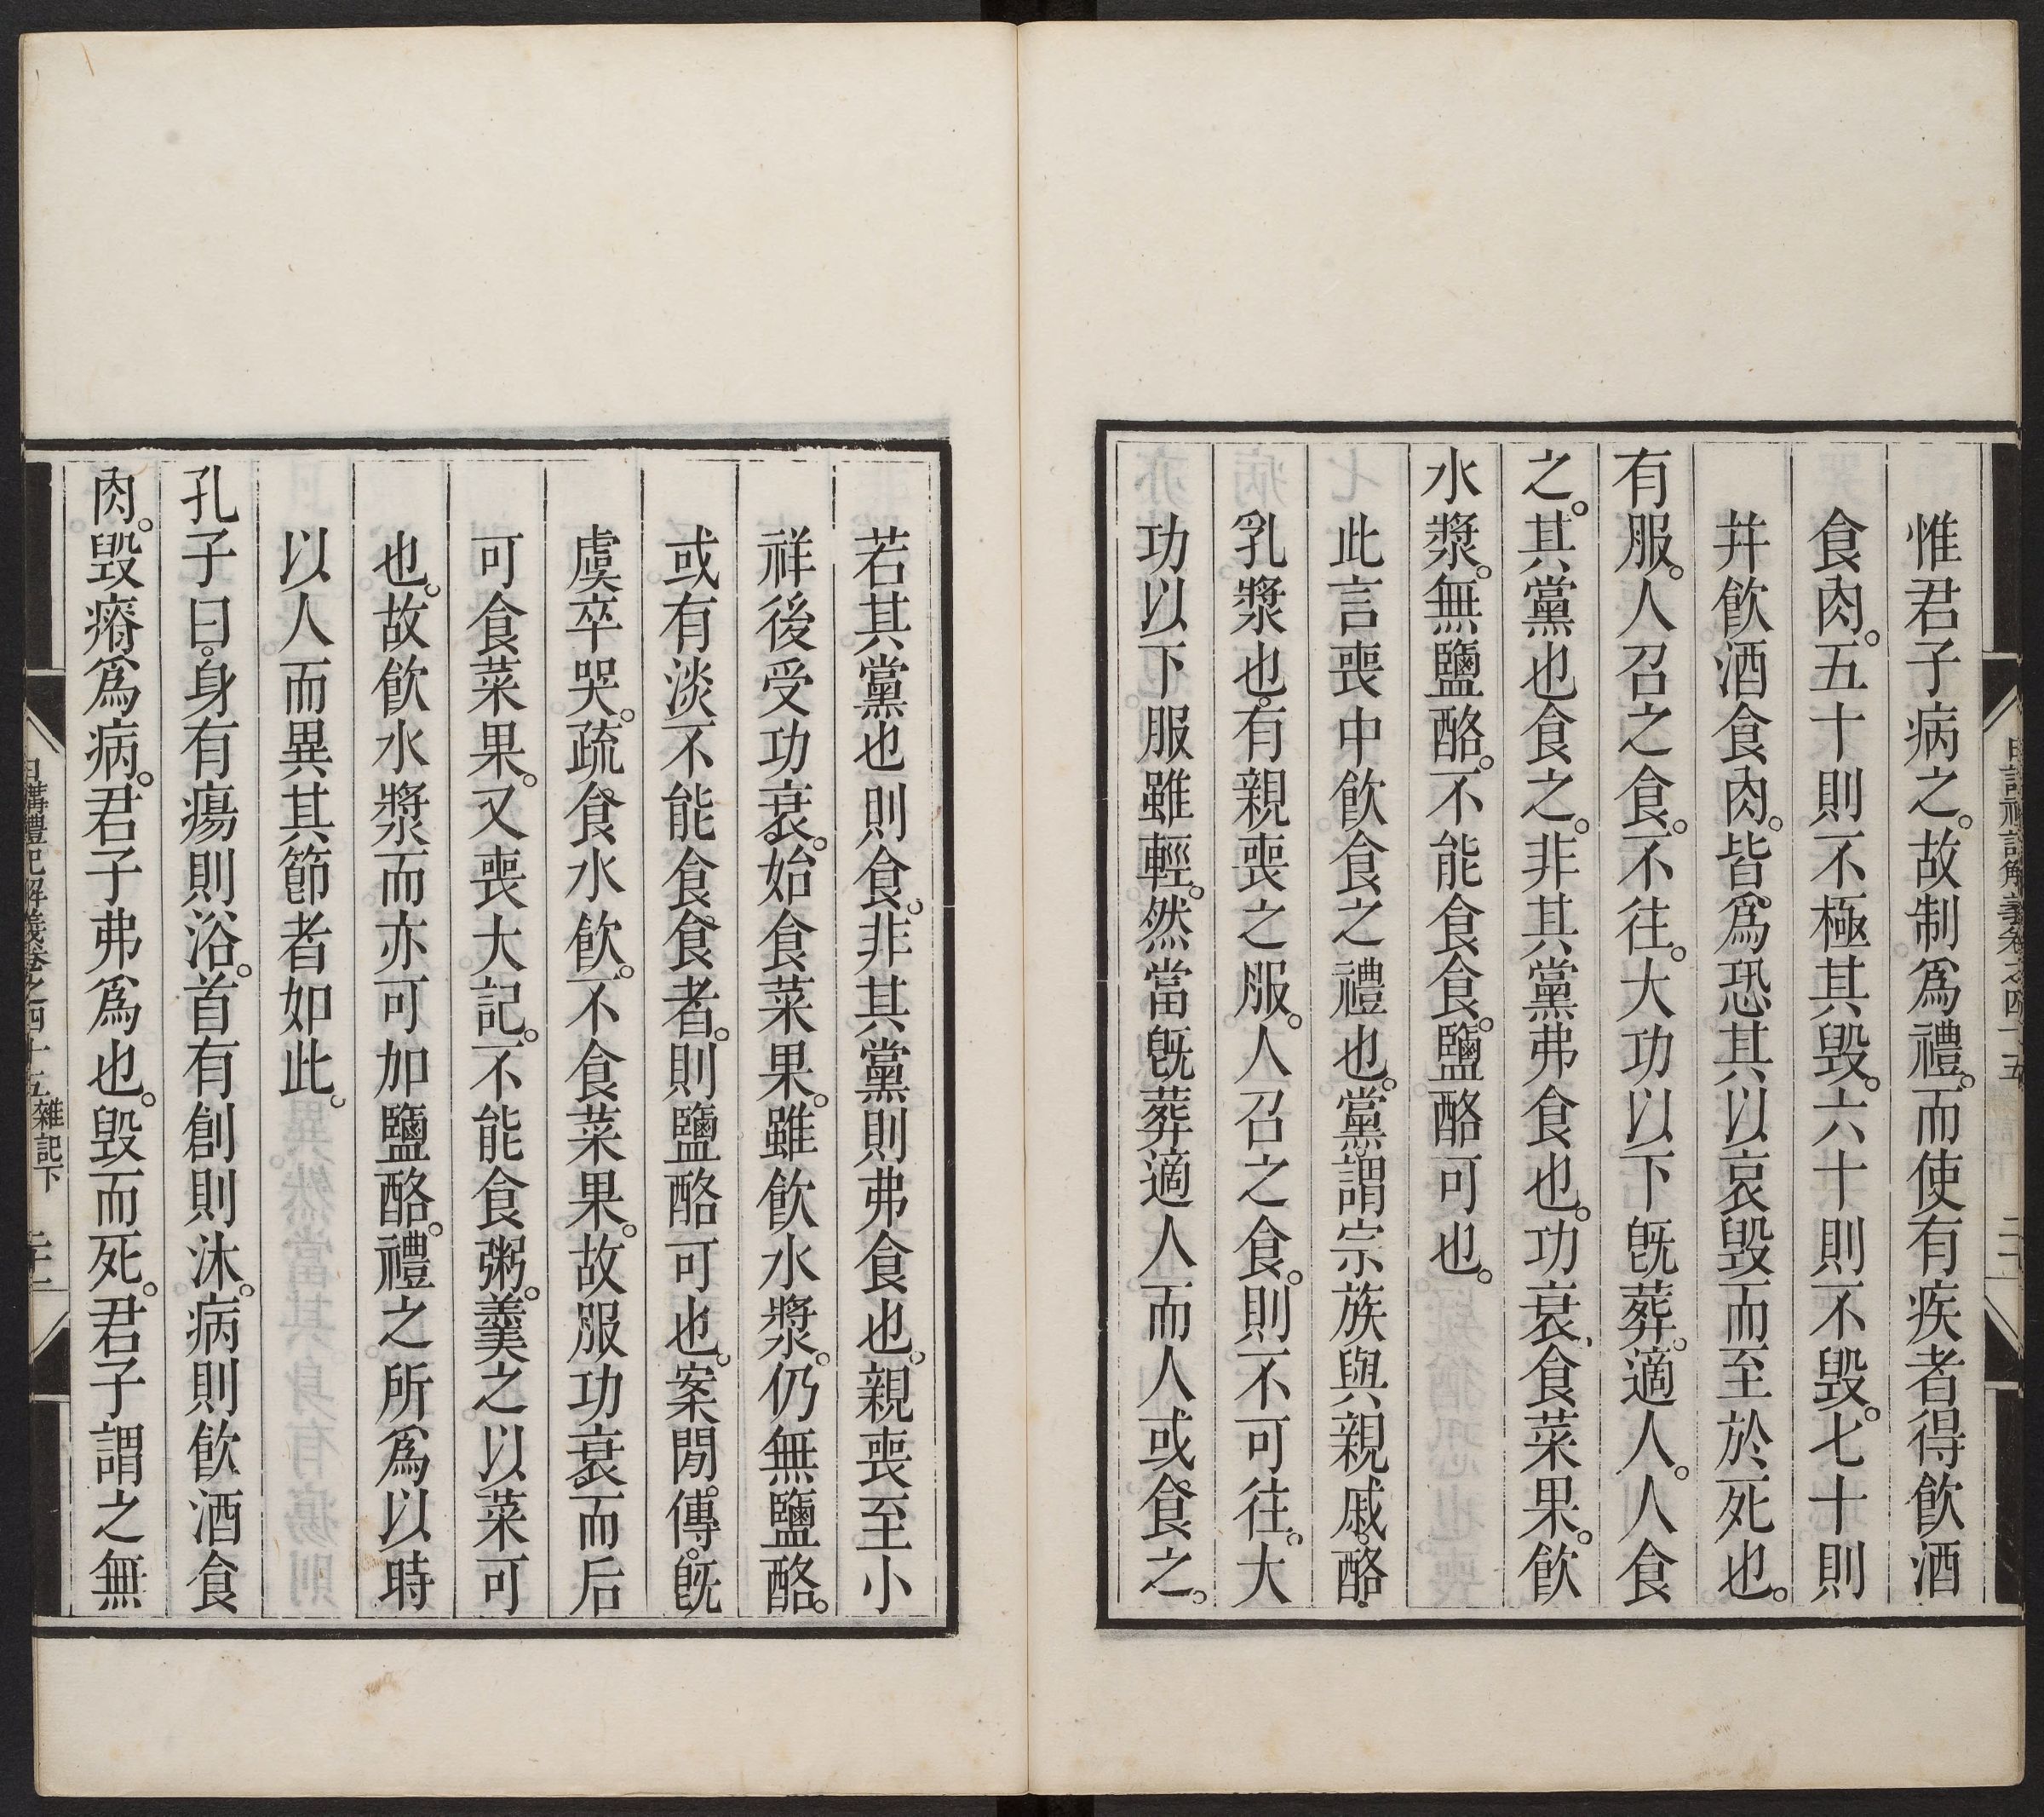 惟君子病之。故制爲禮。而使有疾者得飲酒
食肉。五十則不極其毀。六十則不毀。七十則
幷飲酒食肉。皆爲恐其以哀毀而至於死也。
有服。人召之食。不往。大功以下旣葬。適人。人食
之。其黨也食之。非其黨弗食也。功衰。食菜果。飲
水漿。無鹽酪。不能食食。鹽酪可也。
此言喪中飲食之禮也。黨。謂宗族與親戚。酪。
乳漿也。有親喪之服。人召之食。則不可往。大
功以下服雖輕。然當旣葬適人而人或食之。
若其黨也則食。非其黨則弗食也。親喪至小
祥後受功衰。始食菜果。雖飲水漿。仍無鹽酪。
或有淡不能食食者。則鹽酪可也。案閒傳。旣
虞卒哭。疏食水飲。不食菜果。故服功衰而后
可食菜果。又喪大記。不能食粥。羹之以菜可
也。故飲水漿而亦可加鹽酪。禮之所爲以時
以人而異其節者如此。
孔子曰。身有瘍則浴。首有創則沐。病則飲酒食
肉。毀瘠爲病。君子弗爲也。毀而死。君子謂之無
日講禮記解義卷之四十五 雜記下 二十一